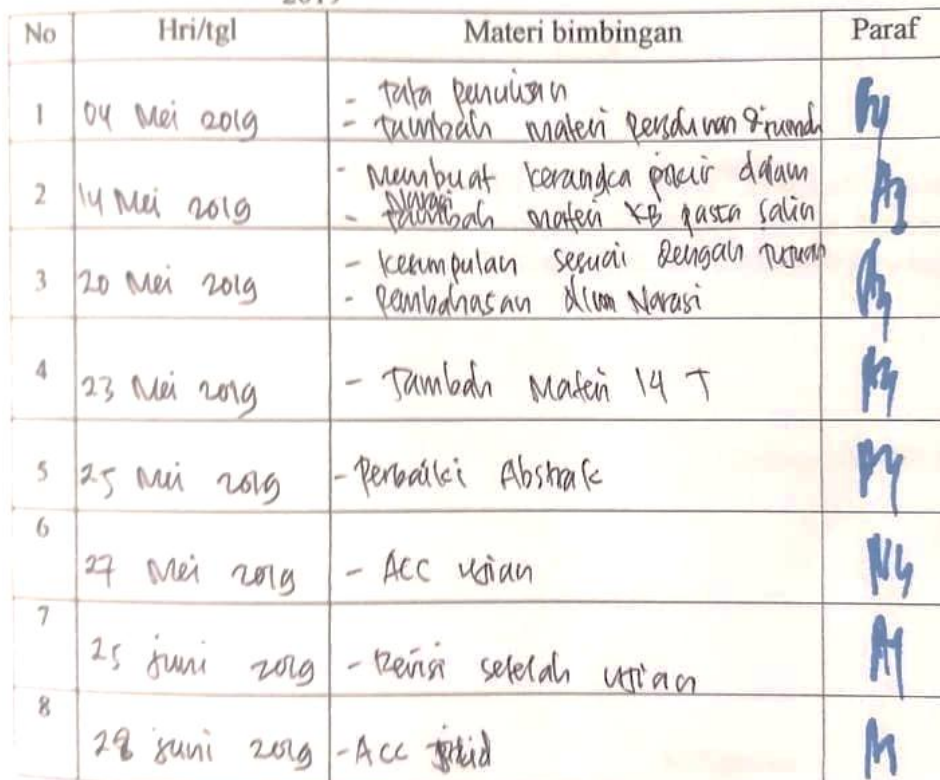 2019
No Hri/tgl Materi bimbingan Paraf
1 04 Mei 2019 - tata penulisan
- tambah materi dirumah
2 14 Mei 2019 - Membuat kerangka pikir dalam
Narasi
- tambah materi KB pasca salin
3 20 Mei 2019 - kesimpulan sesuai dengan tujuan
- Pembahasan dlam Narasi
4 23 Mei 2019 - Tambah Materi 14 T
5 25 Mei 2019 - Perbaiki Abstrak
6 27 Mei 2019 - ACC ujian
7 25 juni 2019 - Revisi setelah ujian
8 28 juni 2019 - Acc jilid